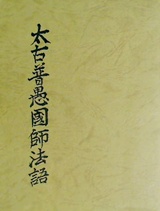 太古普愚國師法語